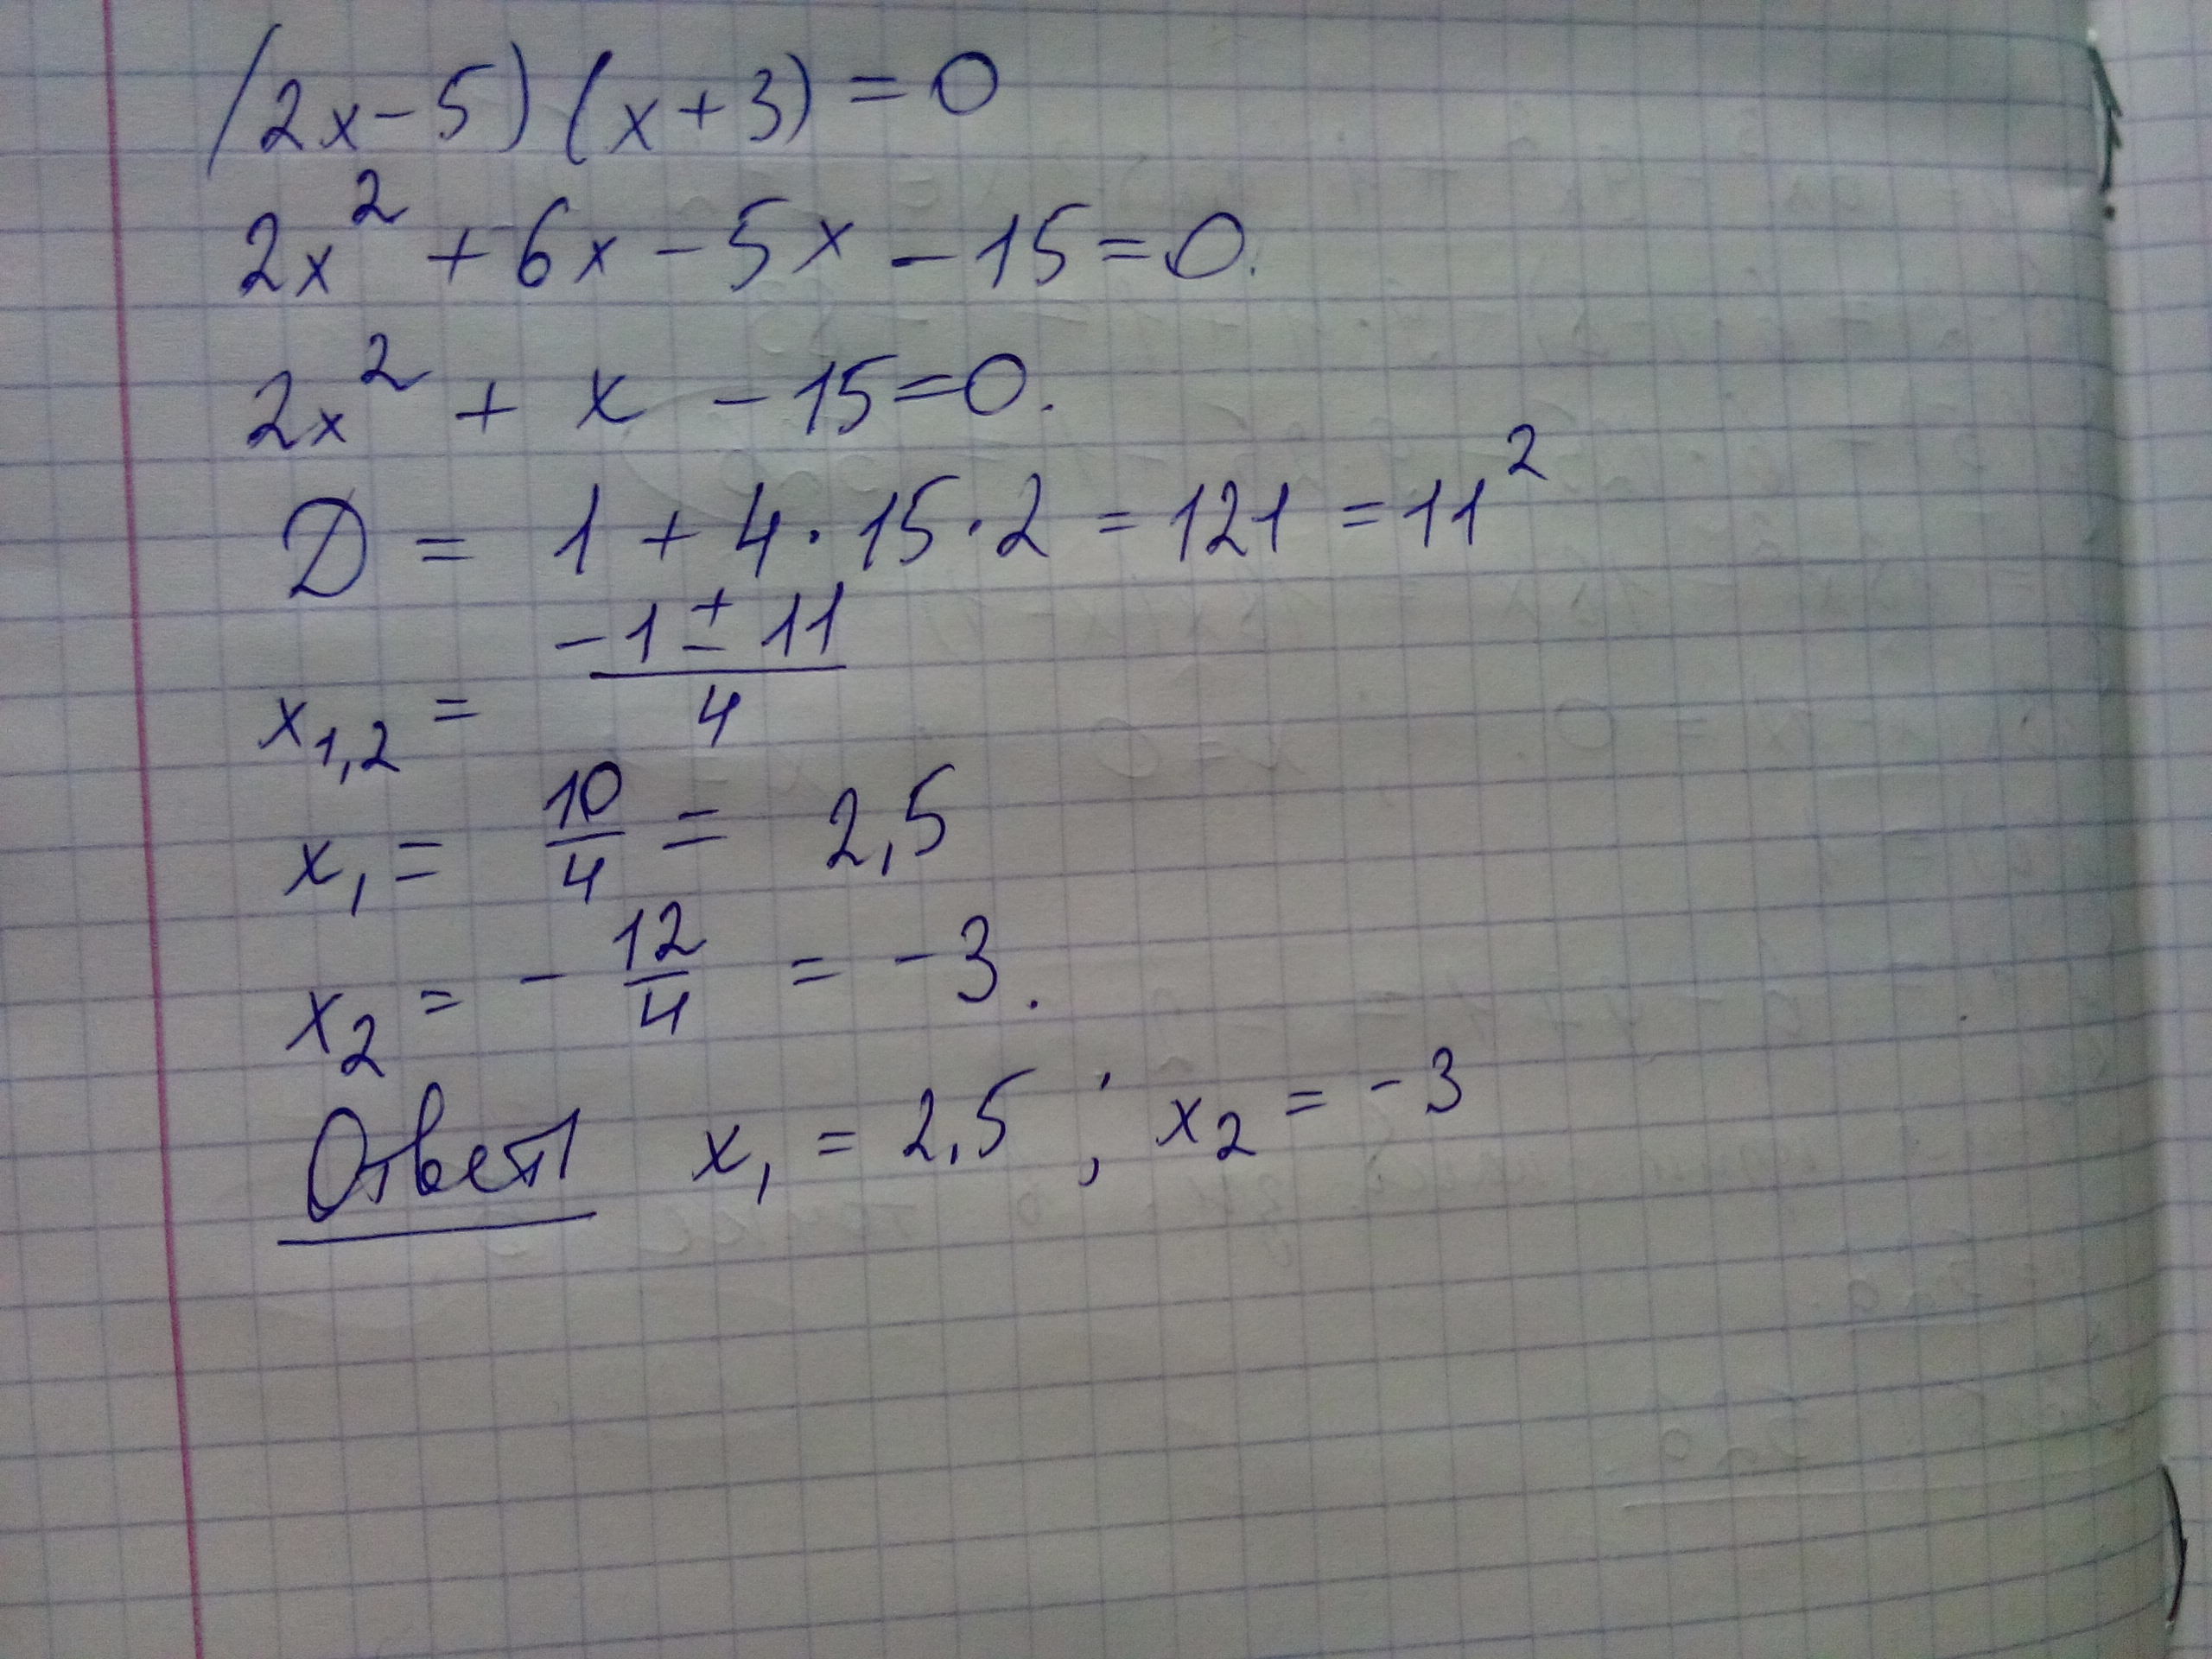 (2x-5)(x+3)=0
2x² + 6x - 5x - 15=0.
2x² + x - 15=0.
D = 1 + 4·15·2 = 121 = 11²
x₁,₂ = (-1 ± 11)/4
x₁ = 10/4 = 2,5
x₂ = - 12/4 = -3.
Ответ x₁ = 2,5 ; x₂ = -3